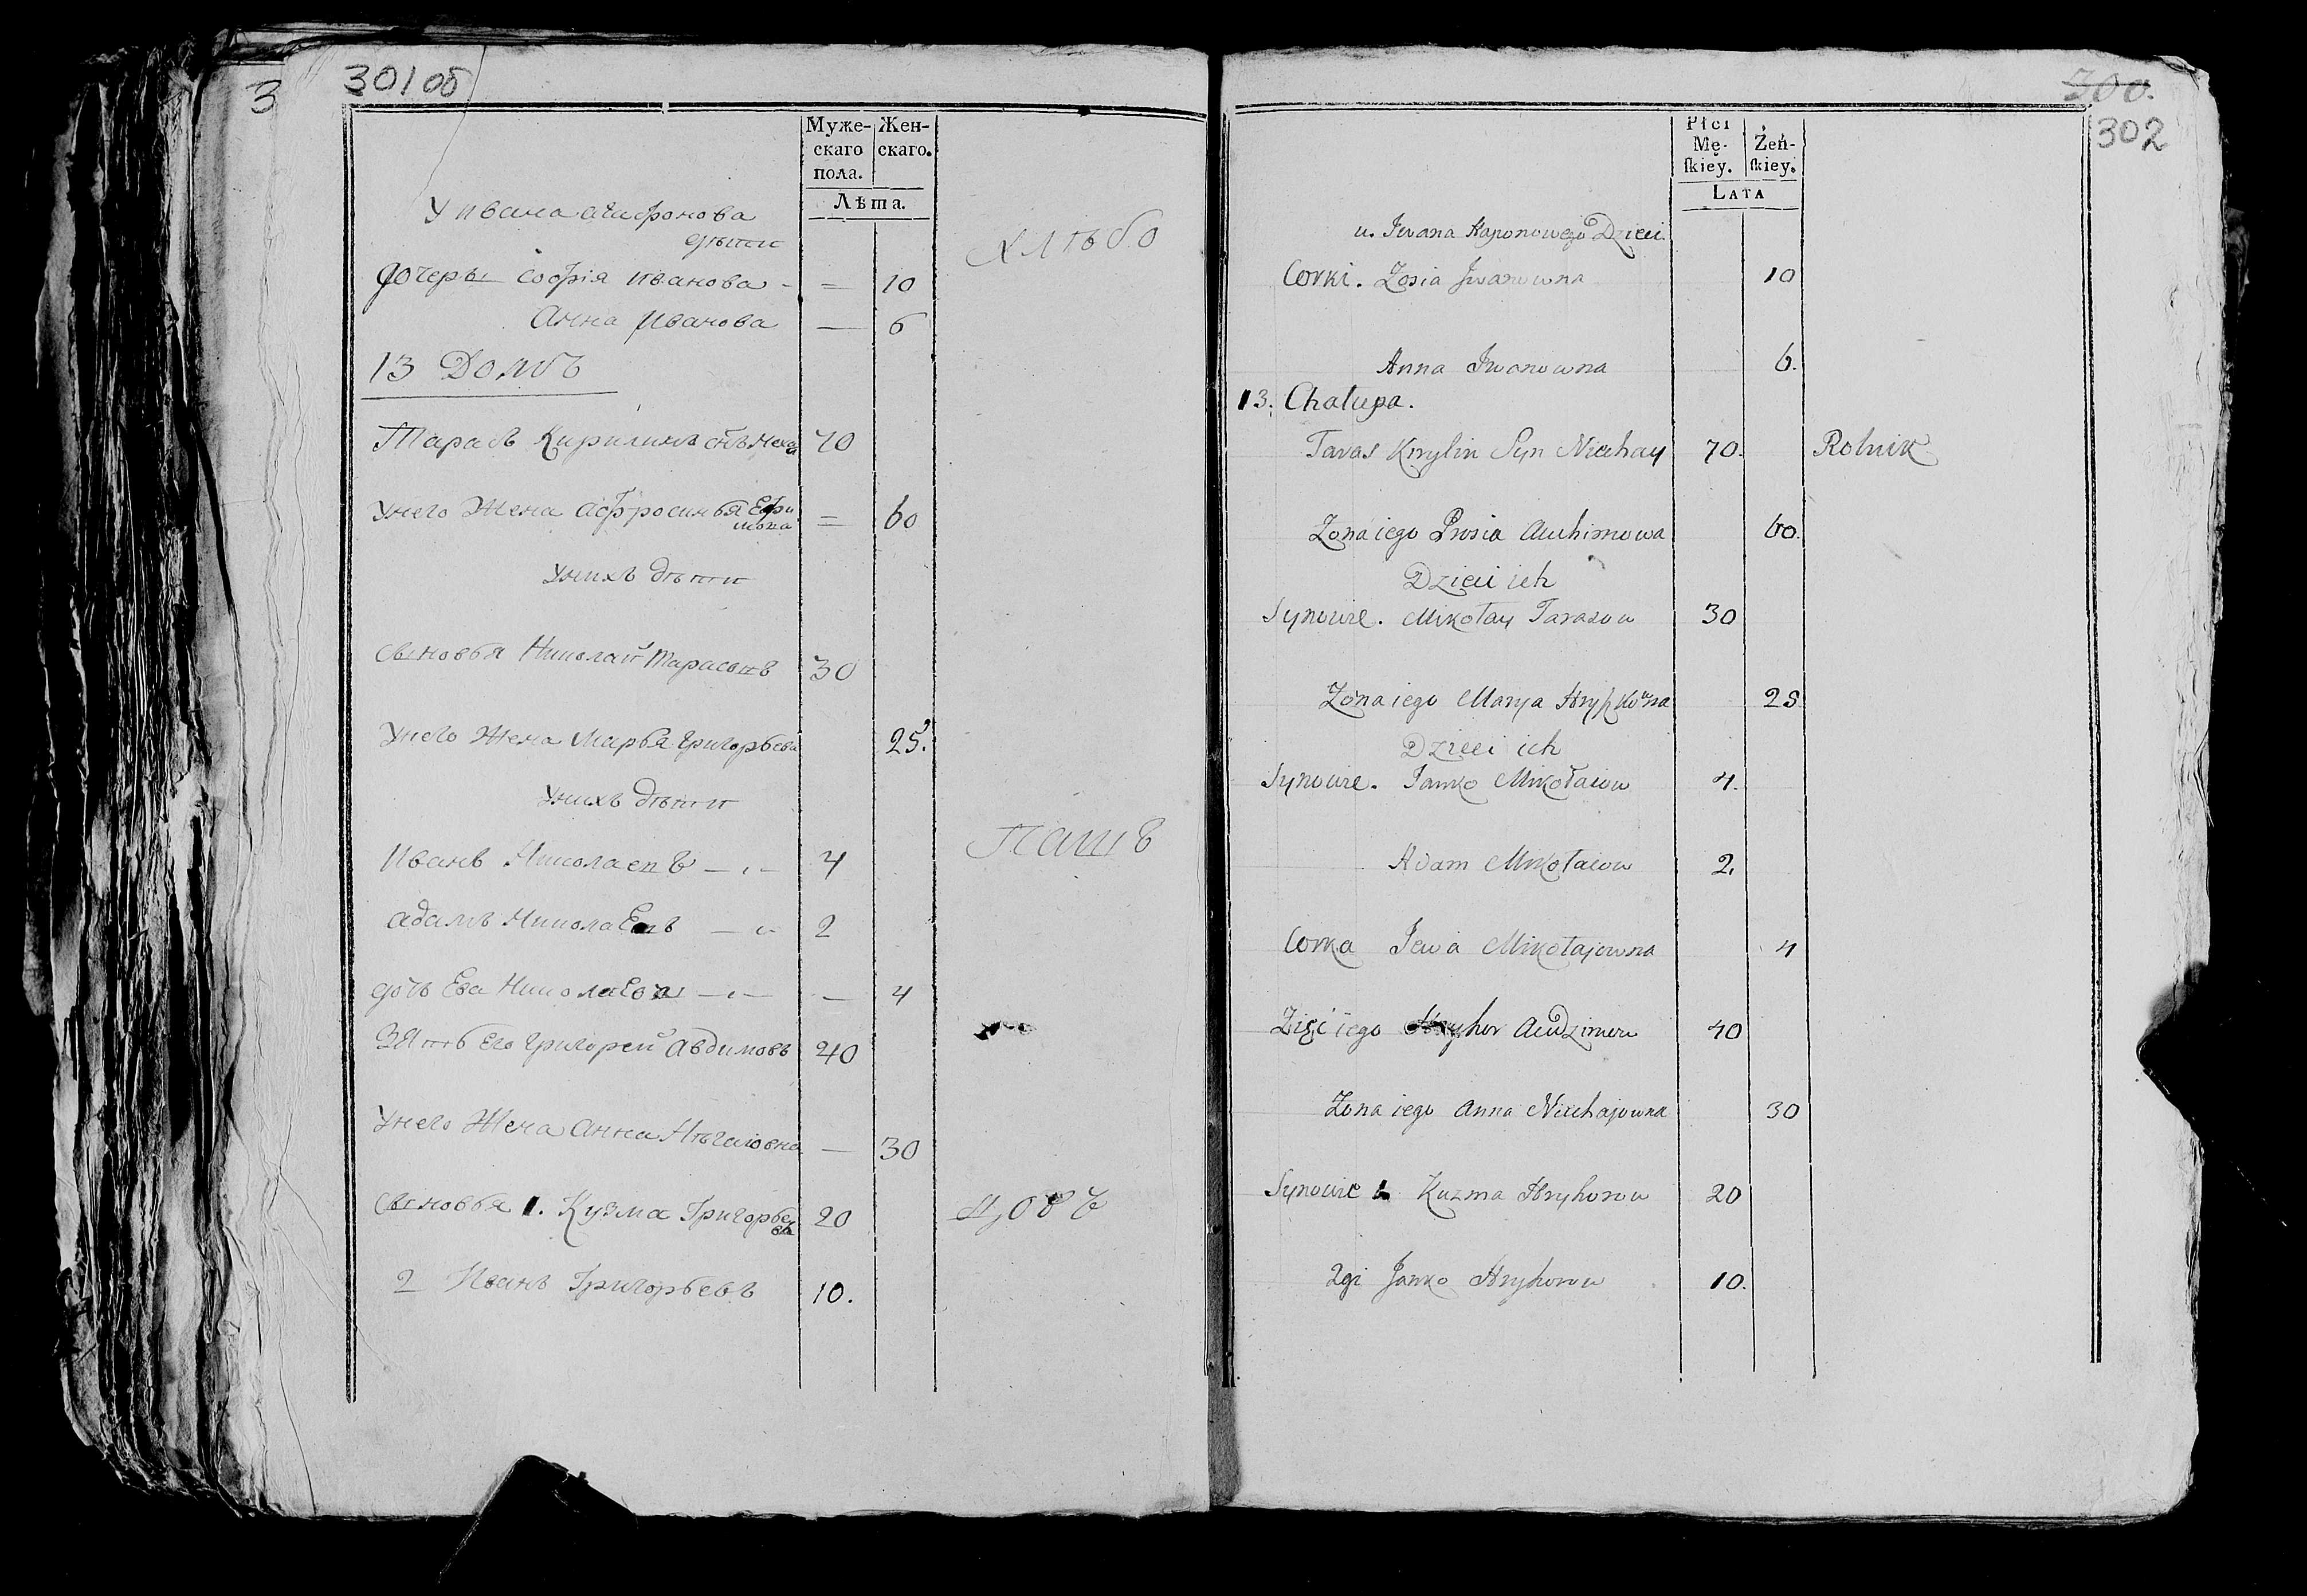 3
301 об
Муже-
скаго
пола.
Жен-
скаго.
Лѣта.
У Ивана Агафонова
дѣти
дочеры София Иванова - = 10
Анна Иванова — 6
13 Домъ
Тарасъ Кирилинъ снъ Неха 70
Унего Жена Афросинья Ефи
мова = 60
Унихъ дѣти
Сыновья Николай Тарасовъ 30
Унего Жена Марья Григорьева 25.
Унихъ дѣти
Иванъ Николаевъ 4
Адамъ Николаевъ 2
дочь Ева Николаева — 4
Зять Его Григорей Авдимовъ 40
Унего Жена Анна Нѣгаювна — 30
Сыновья 1. Кузма Григорье
въ 20
2 Иванъ Григорьевъ 10.
Хлѣбо
Паш
300.
302
Płci
Mę-
skiey.
Żeń-
skiey.
Lata
u. Iwana Haponowego Dzieci
Corki. Zosia Iwanowna 10
Anna Iwanowna 6.
13. Chałupa.
Taras Kirylin Syn Niechay 70. Rolnik
Zona iego Prosia Auchimowa 60.
Dzieci ich
Synowie. Mikołay Tarasow 30
Zona iego Marya Hryszkowna 25
Dzieci ich
Synowie. Janko Mikołaiow 4.
Adam Mikołaiow 2.
Corka Jewa Mikołajowna 4
Zięć iego Hryhor Audzimow 40
Zona iego Anna Niechajowna 30
Synowie 1. Kuzma Hryhorow 20
2gi Janko Hryhorow 10.